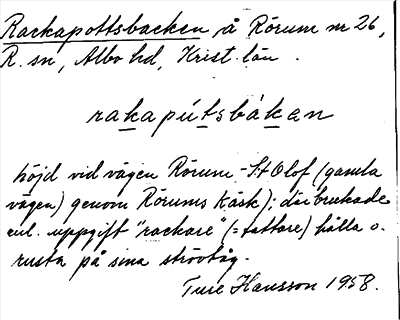 Rackapottsbacken å Rörum nr 26,
R. sn, Albo hd, Krist. län.
rakapútsbákan
höjd vid vägen Rörum - St Olof (gamla
vägen) genom Rörums Käsk); där brukade
enl. uppgift "rackare" (= tattare) hålla o.
rusta på sina strövtåg.
Ture Hansson 1958.